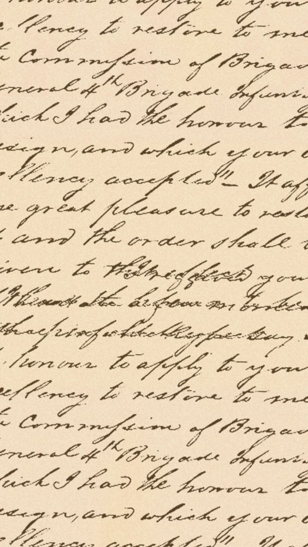 honour to apply to you
ellency to restore to me
Commission of Brigad
neral 4th Brigade Infant
hich I had the honour t
esign, and which your
ellency accepted" – It aff
me great pleasure to res
and the order shall
given to your
honour to apply to you
ellency to restore to me
Commission of Brigad
neral 4th Brigade Infant
hich I had the honour t
esign, and which your
ellency accepted" – It